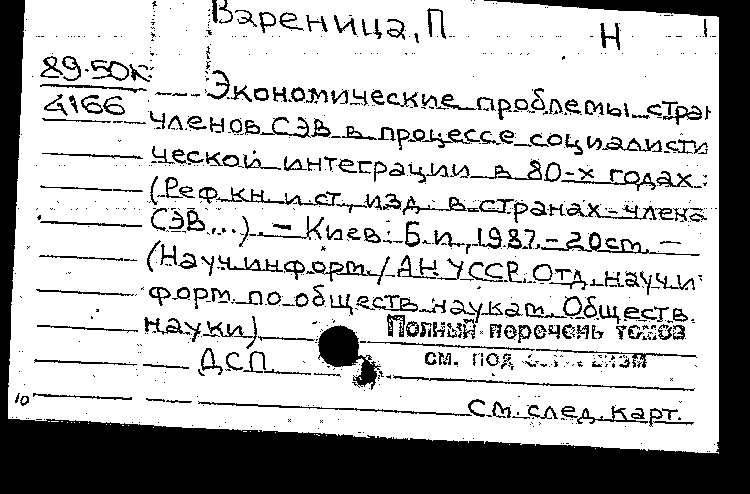 Вареница, П
Н
89-50К
4166
Экономические проблемы стран
членов СЭВ в процессе социалисти
ческой интеграции в 80-х годах:
(Реф. кн. и ст., изд. в странах-члена
СЭВ...). – Киев: Б.и., 1987. – 20 см. –
(Науч. информ. / АН УССР. Отд. науч. и
форм. по обществ. наукам. Обществ.
науки)
Полный перечень томов
ДСП
см. под
См. след. карт.
10